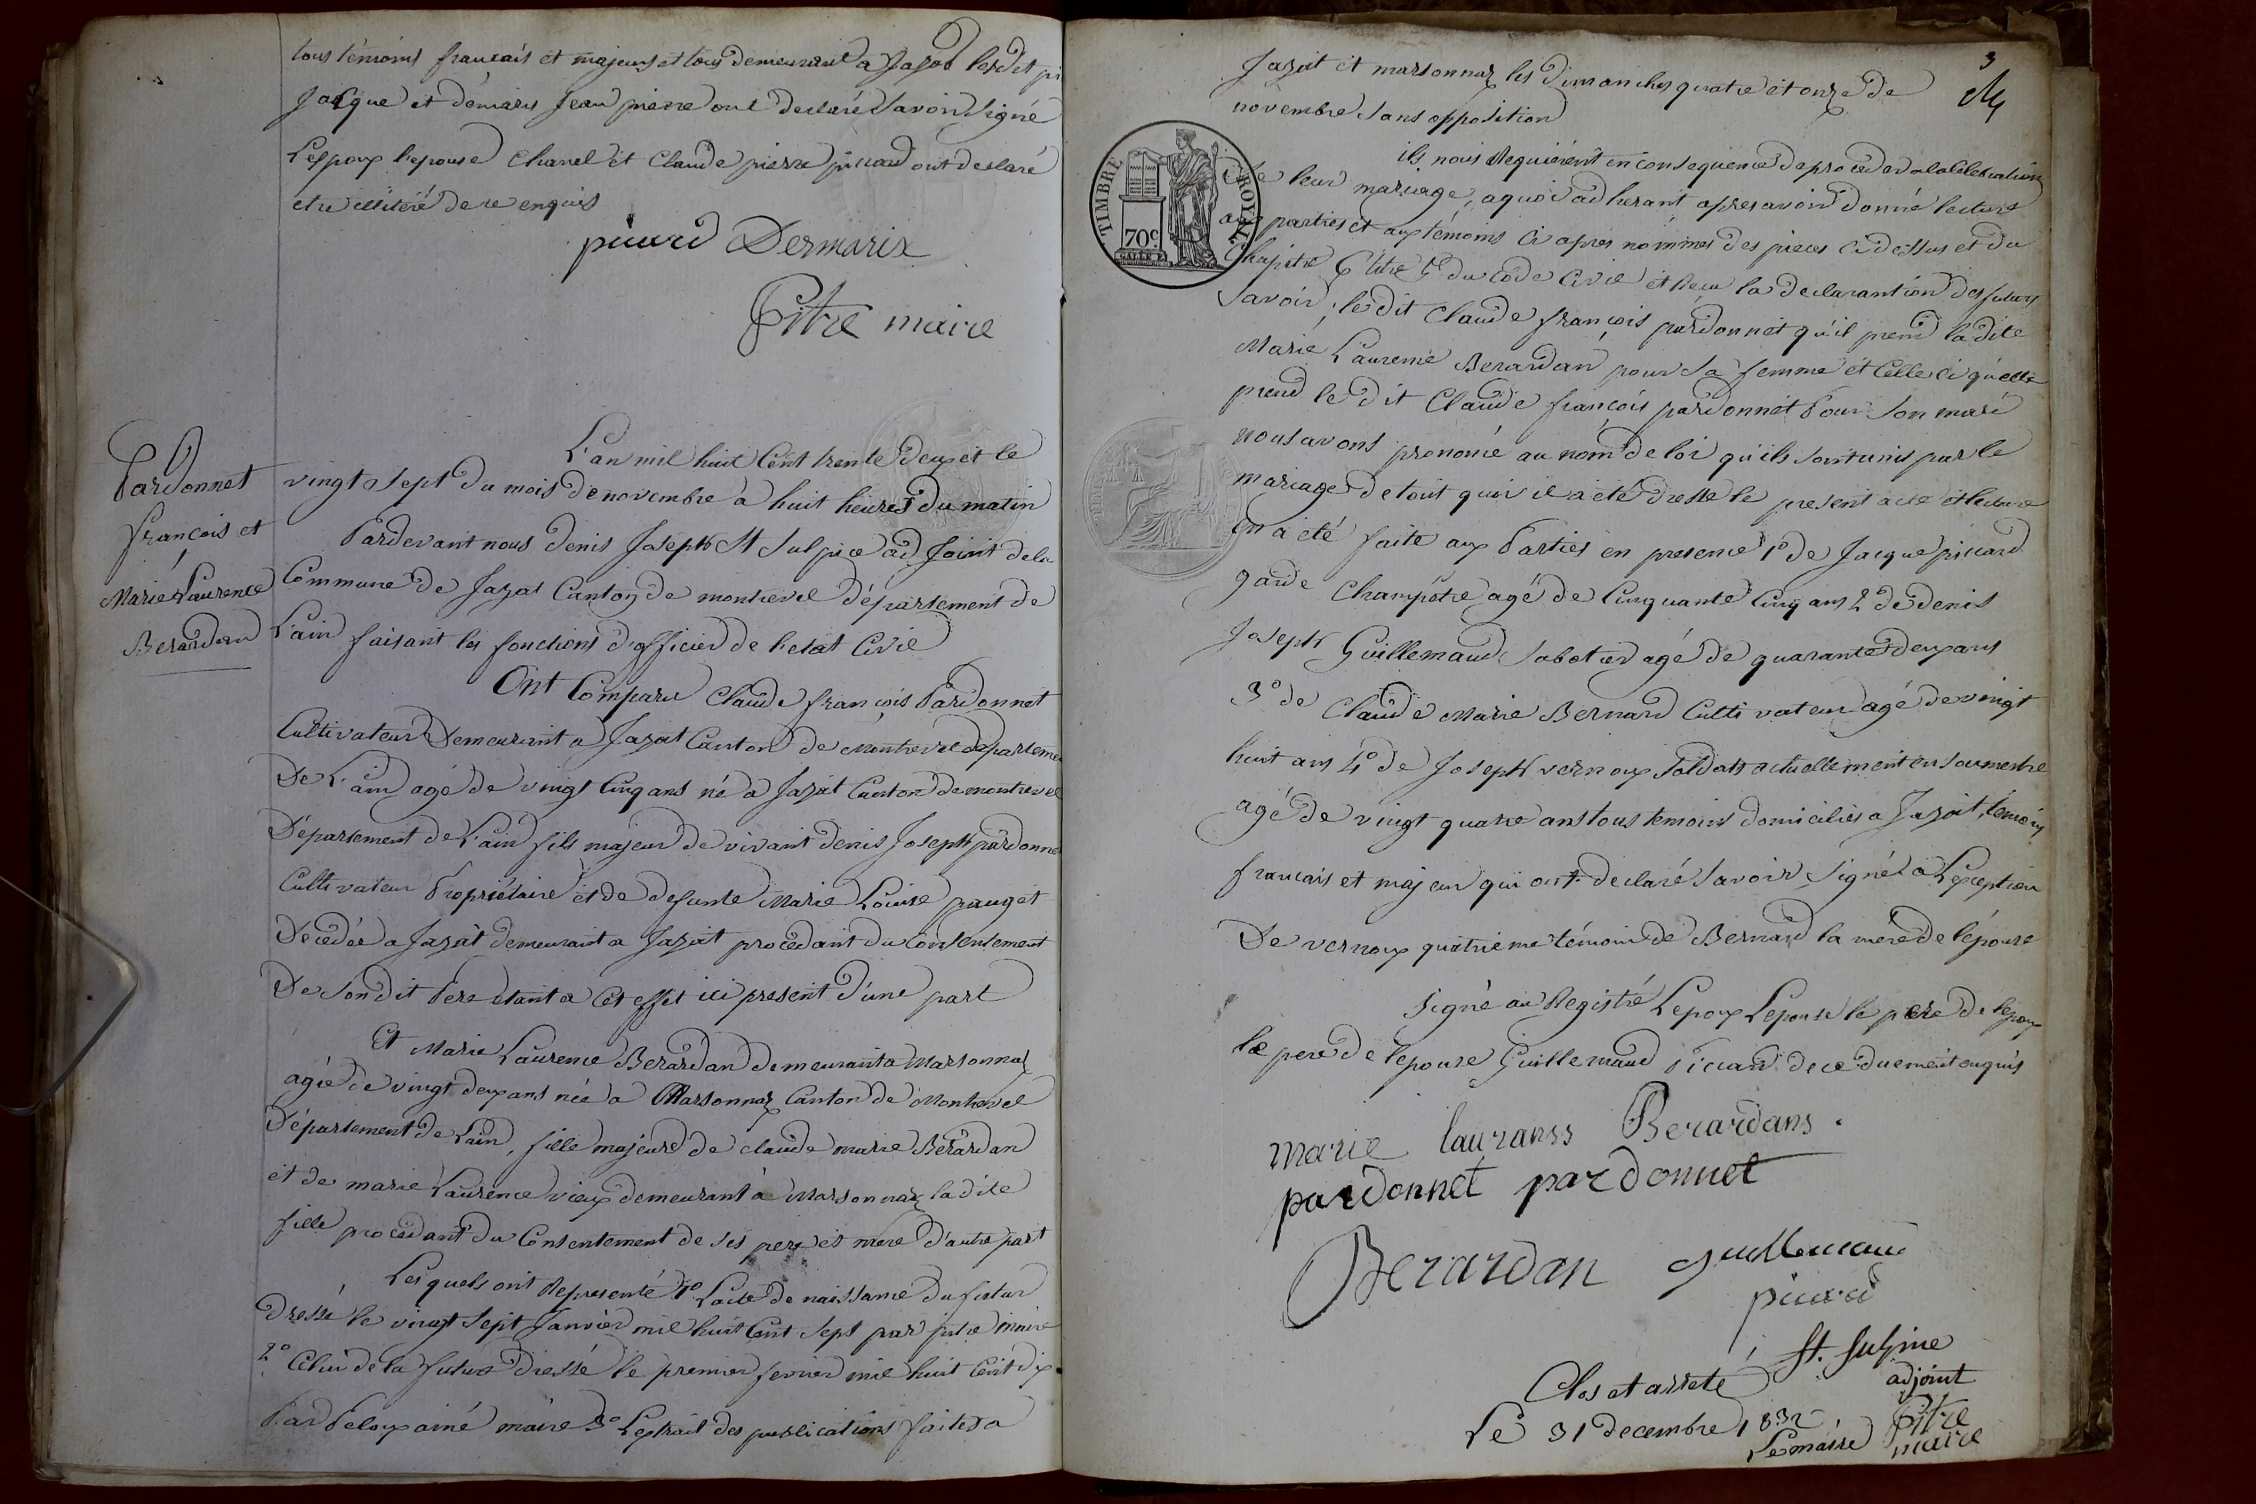 tous témoins francais et majeurs et tous demeurant a Jazat lesdit
Jacque et démarix Jean pierre ont declaré Savoir Signé
L'espoux lepouse Chanel et Claude pierre piccard ont declaré
etre illitéré de ce enquis
picard Dermarix
Pitre maire
Pardonnet
françois et
Marie Laurence
Berardan
L'an mil huit Cent trente deux et le
vingt Sept du mois de novembre à huit heures du matin
Pardevant nous denis Joseph St Sulpice adJoint de la
Commune de Jazat Canton de montrevel département de
L'ain faisant les fonctions d'officier de letat Civil
Ont Comparu Claude françois Pardonnet
Cultivateur Demeurant a Jazat Canton de Montrevel departeme
De L'ain agé de vingt Cinq ans né a Jazat Canton de montrevel
Département de L'ain fils majeur de vivant denis Joseph pardonne
Cultivateur Propriétaire et de defunte Marie Louise pauget
Decedée a Jazat demeurant a Jazat procedant du Consentement
De Son dit Pere etant a Cet effet ici present d'une part
Et Marie Laurence Berardan demeurant a Marsonnaz
agée de vingt deux ans née a Marsonnaz Canton de Montrevel
Département de Lain, fille majeure de claude marie Berardan
et de marie Laurence vieux demeurant à Marsonnaz ladite
fille procedant du Consentement de ses pere et mere d'autre part
Lesquels ont Representé 1º Lacte de naissance du futur
Dressé le vingt Sept Janvier mil huit Cent Sept par pitre maire
2º Celui de la future Dressé le premier fevrier mil huit Cent dix
Par Peloux ainé maire 3º Lextrait des publications faites a
3
Jazat et marsonnaz les dimanches quatre et onze de
novembre Sans opposition
ils nous Requierent en Consequence de proceder a la Celebration
De leur mariage, aquoi adherant apres avoir donné lecture
aux parties et aux témoins Ci apres nommés des pieces Ci dessus et du
Chapitre 6 titre 5 du Code Civil et Recu la declarantion des futurs
Savoir; le dit Claude françois pardonnet qu'il prend la dite
Marie Laurence Berardan pour Sa femme et Celle Ci qu'elle
prend le dit Claude françois pardonnet Pour Son mari
nous avons prononcé au nom de loi qu'ils Sont unis par le
mariage de tout quoi il a été dressé le present acte et lecture
en a été faite aux Parties en presence 1º de Jacque piccard
garde Champêtre agé de Cinquante Cinq ans 2 de denis
Joseph Guillemaud Sabotier agé de quarante deux ans
3º de Claude Marie Bernard Cultivateur agé de vingt
huit ans 4º de Joseph vernoux Soldat actuellement en Soumestre
agé de vingt quatre ans tous temoins domiciliés a Jazat, témoin
francais et majeur qui ont declaré Savoir Signé a Lexception
De vernoux quatrieme témoin de Bernard la mere de lépouse
Signé au Registré Lepoux Lepouse le pere de lepoux
le pere de lepouse Guillemaud Piccard de ce duement enquis
marie lauranss Berardans.
pardonnet pardonnet
Berardan guillemaud
picard
St. Sulpice
adjoint
Clos et arreté
Le 31 decembre 1832
Le maire
Pitre
maire
TIMBRE ROYAL
70c